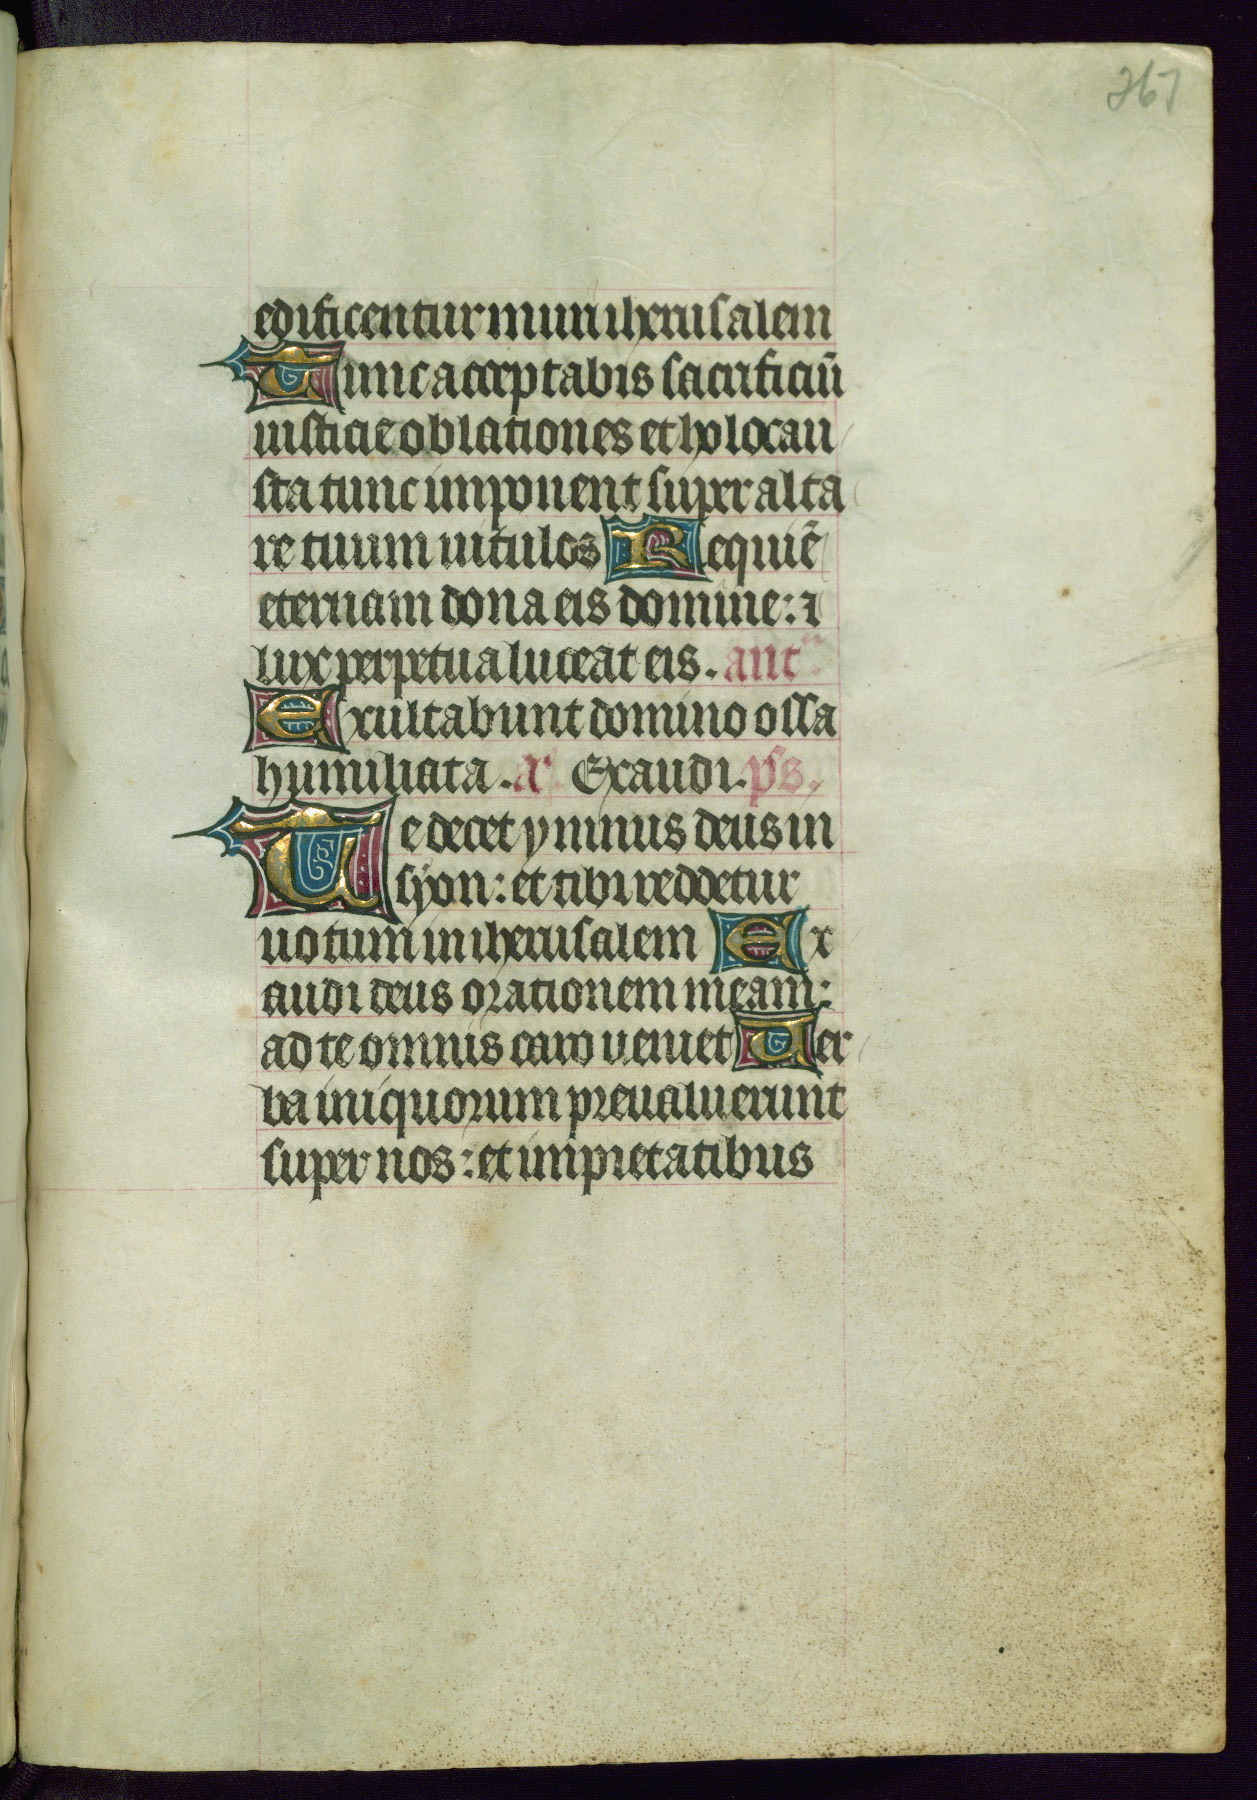 267
edificentur muri iherusalem
Tunc acceptabis sacrificiū
iusticie oblationes et holocau
sta tunc imponent super alta
re tuum uitulos Requiē
eternam dona eis domine: ⁊
lux perpetua luceat eis. ant
Exultabunt domino ossa
humiliata. a Exaudi. ps.
Te decet ymnus deus in
syon: et tibi reddetur
uotum in iherusalem Ex
audi deus orationem meam:
ad te omnis caro veniet Ver
ba iniquorum preualuerunt
super nos: et impietatibus